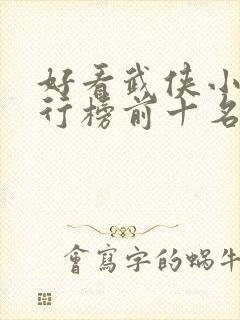 好看武侠小
行榜前十名
會寫字的蝸牛